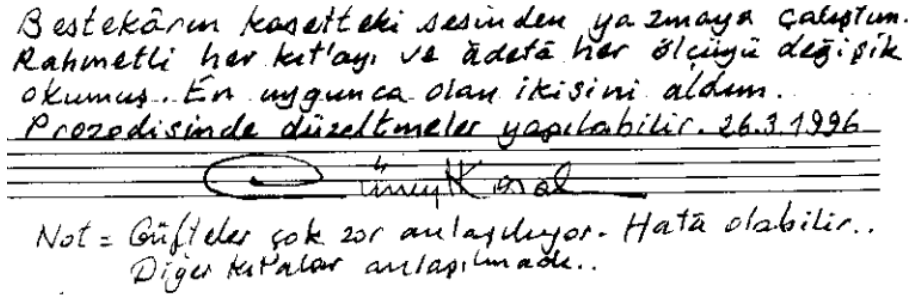 Bestekârın kasetteki sesinden yazmaya çalıştım.
Rahmetli her kıt'ayı ve âdetâ her ölçüyü değişik
okumuş.. En uygunca olan ikisini aldım.
Prozodisinde düzeltmeler yapılabilir. 26.3.1996
Not = Güfteler çok zor anlaşılıyor. Hatâ olabilir..
Diğer kıt'alar anlaşılmadı..